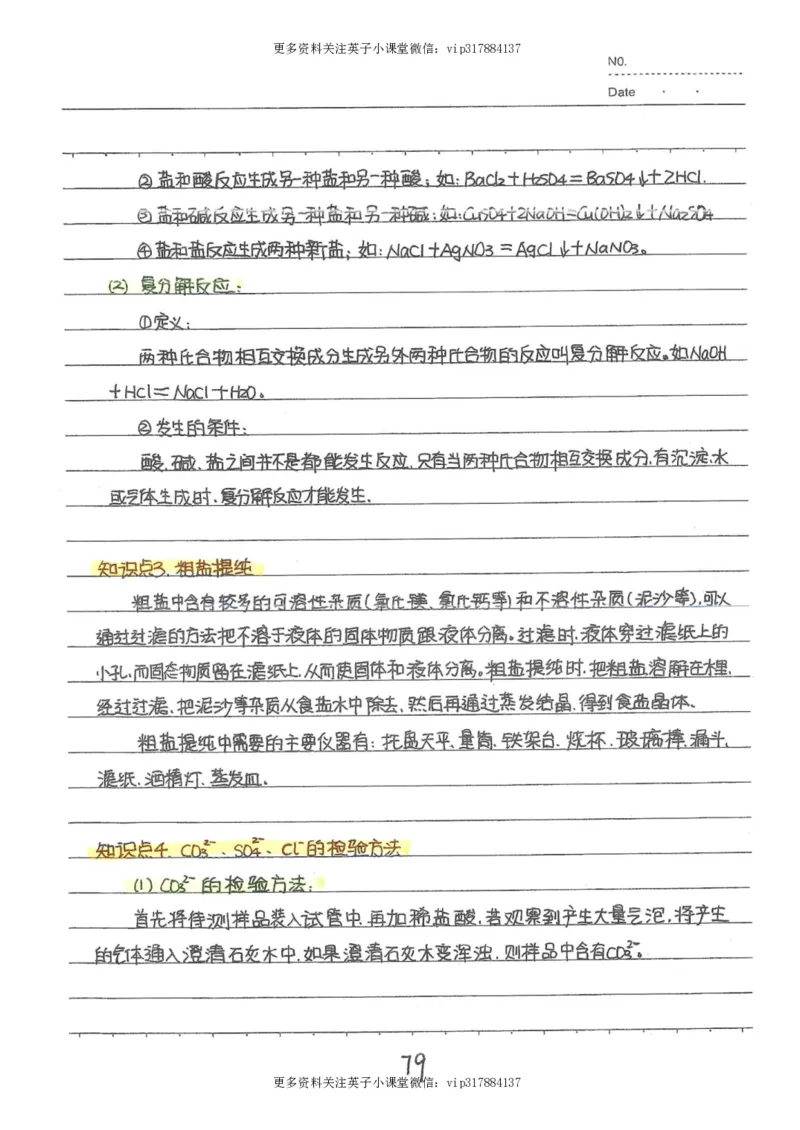 更多资料关注英子小课堂微信：vip317884137
NO.
Date · ·
②盐和酸反应生成另一种盐和另一种酸；如：BaCl2+H2SO4=BaSO4↓+2HCl.
③盐和碱反应生成另一种盐和另一种碱；如：CuSO4+2NaOH=Cu(OH)2↓+Na2SO4
④盐和盐反应生成两种新盐；如：NaCl+AgNO3=AgCl↓+NaNO3。
(2) 复分解反应：
①定义：
两种化合物相互交换成分生成另外两种化合物的反应叫复分解反应。如NaOH
+HCl=NaCl+H2O。
②发生的条件：
酸、碱、盐之间并不是都能发生反应，只有当两种化合物相互交换成分，有沉淀、水
或气体生成时，复分解反应才能发生.
知识点3. 粗盐提纯
粗盐中含有较多的可溶性杂质(氯化镁、氯化钙等)和不溶性杂质(泥沙等)，可以
通过过滤的方法把不溶于液体的固体物质跟液体分离。过滤时，液体穿过滤纸上的
小孔，而固态物质留在滤纸上，从而使固体和液体分离。粗盐提纯时，把粗盐溶解在水里，
经过过滤，把泥沙等杂质从食盐水中除去，然后再通过蒸发结晶，得到食盐晶体、
粗盐提纯中需要的主要仪器有：托盘天平、量筒、铁架台、烧杯、玻璃棒、漏斗、
滤纸、酒精灯、蒸发皿。
知识点4. CO3²⁻、SO4²⁻、Cl⁻的检验方法
(1) CO3²⁻的检验方法：
首先将待测样品装入试管中，再加稀盐酸，若观察到产生大量气泡，将产生
的气体通入澄清石灰水中，如果澄清石灰水变浑浊，则样品中含有CO3²⁻。
79
更多资料关注英子小课堂微信：vip317884137